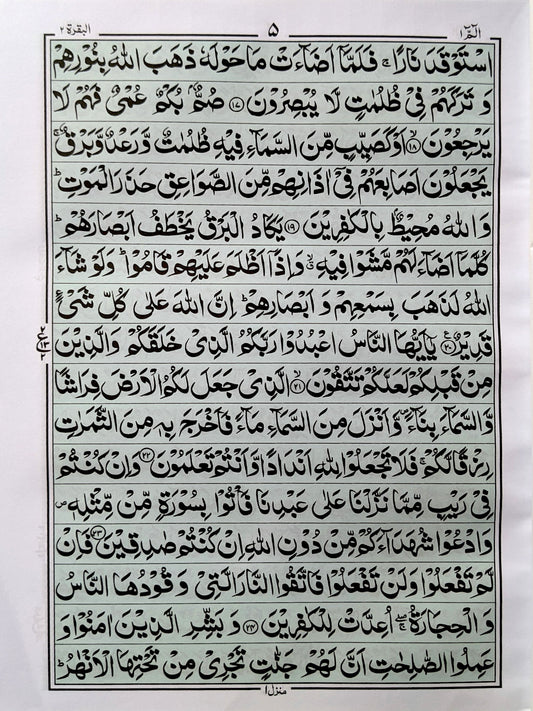 الٓمّٓ ١ ٥ البقرة ٢
اسْتَوْقَدَ نَارًا ۚ فَلَمَّآ اَضَآءَتْ مَاحَوْلَهٗ ذَهَبَ اللّٰهُ بِنُوْرِهِمْ
وَ تَرَكَهُمْ فِیْ ظُلُمٰتٍ لَّا یُبْصِرُوْنَ ﴿۱۷﴾ صُمٌّۢ بُكْمٌ عُمْیٌ فَهُمْ لَا
یَرْجِعُوْنَ ﴿۱۸﴾ اَوْ كَصَیِّبٍ مِّنَ السَّمَآءِ فِیْهِ ظُلُمٰتٌ وَّ رَعْدٌ وَّ بَرْقٌ ۚ
یَجْعَلُوْنَ اَصَابِعَهُمْ فِیْۤ اٰذَانِهِمْ مِّنَ الصَّوَاعِقِ حَذَرَ الْمَوْتِ ؕ
وَ اللّٰهُ مُحِیْطٌۢ بِالْكٰفِرِیْنَ ﴿۱۹﴾ یَكَادُ الْبَرْقُ یَخْطَفُ اَبْصَارَهُمْ ؕ
كُلَّمَاۤ اَضَآءَ لَهُمْ مَّشَوْا فِیْهِ ۙ وَ اِذَاۤ اَظْلَمَ عَلَیْهِمْ قَامُوْا ؕ وَ لَوْ شَآءَ
اللّٰهُ لَذَهَبَ بِسَمْعِهِمْ وَ اَبْصَارِهِمْ ؕ اِنَّ اللّٰهَ عَلٰی كُلِّ شَیْءٍ
قَدِیْرٌ ﴿۲۰﴾ یٰۤاَیُّهَا النَّاسُ اعْبُدُوْا رَبَّكُمُ الَّذِیْ خَلَقَكُمْ وَ الَّذِیْنَ
مِنْ قَبْلِكُمْ لَعَلَّكُمْ تَتَّقُوْنَ ﴿۲۱﴾ الَّذِیْ جَعَلَ لَكُمُ الْاَرْضَ فِرَاشًا
وَّ السَّمَآءَ بِنَآءً ۪ وَّ اَنْزَلَ مِنَ السَّمَآءِ مَآءً فَاَخْرَجَ بِهٖ مِنَ الثَّمَرٰتِ
رِزْقًا لَّكُمْ ۚ فَلَا تَجْعَلُوْا لِلّٰهِ اَنْدَادًا وَّ اَنْتُمْ تَعْلَمُوْنَ ﴿۲۲﴾ وَ اِنْ كُنْتُمْ
فِیْ رَیْبٍ مِّمَّا نَزَّلْنَا عَلٰی عَبْدِنَا فَاْتُوْا بِسُوْرَةٍ مِّنْ مِّثْلِهٖ ۪
وَ ادْعُوْا شُهَدَآءَكُمْ مِّنْ دُوْنِ اللّٰهِ اِنْ كُنْتُمْ صٰدِقِیْنَ ﴿۲۳﴾ فَاِنْ
لَّمْ تَفْعَلُوْا وَ لَنْ تَفْعَلُوْا فَاتَّقُوا النَّارَ الَّتِیْ وَ قُوْدُهَا النَّاسُ
وَ الْحِجَارَةُ ۖۚ اُعِدَّتْ لِلْكٰفِرِیْنَ ﴿۲۴﴾ وَ بَشِّرِ الَّذِیْنَ اٰمَنُوْا وَ
عَمِلُوا الصّٰلِحٰتِ اَنَّ لَهُمْ جَنّٰتٍ تَجْرِیْ مِنْ تَحْتِهَا الْاَنْهٰرُ ؕ
منزل ١
٢
ع
١٣
٢